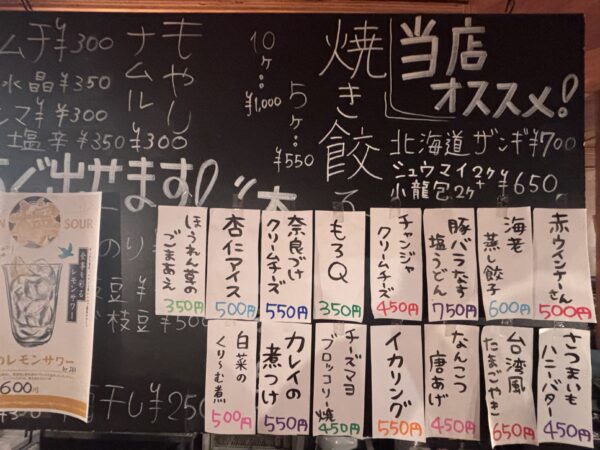 当店
オススメ!
北海道 ザンギ ¥700
シュウマイ2ケ+
小龍包2ケ
¥650
焼き餃子
5ケ…
¥550
10ケ…
¥1,000
もやし
ナムル
¥300
ムチ ¥300
水晶 ¥350
¥300
塩辛 ¥350
ぐ出せます!
豆 ¥
枝豆 ¥500
干し ¥250
SOUR
塩
レモンサワー
のレモンサワー
600円
赤ウインナーさん
500円
海老
蒸し餃子
600円
豚バラなす
塩うどん
750円
チャンジャ
クリームチーズ
450円
もろQ
350円
奈良づけ
クリームチーズ
550円
杏仁アイス
500円
ほうれん草の
ごまあえ
350円
さつまいも
ハニーバター
450円
台湾風
たまごやき
650円
なんこつ
唐あげ
450円
イカリング
550円
チーズマヨ
ブロッコリー焼
450円
カレイの
煮つけ
550円
白菜の
くり〜む煮
500円